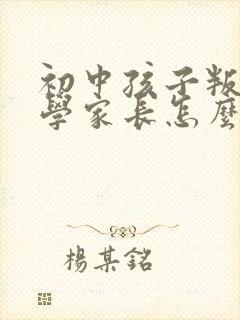 初中孩子叛
學家長怎麼
楊某銘